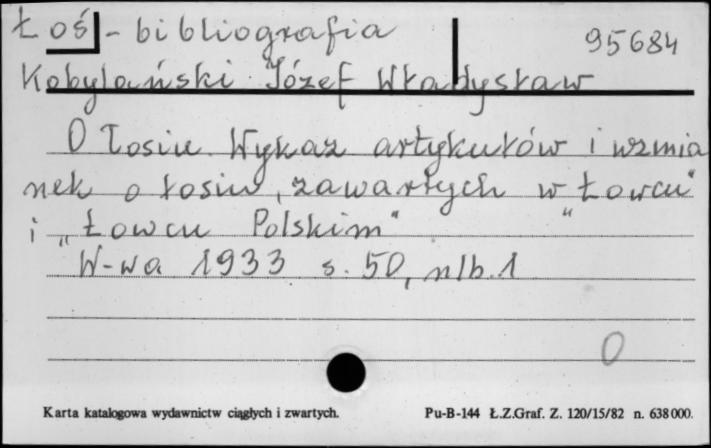 Łoś - bibliografia 95684
Kobylański Józef Władysław
O łosiu. Wykaz artykułów i wzmia
nek o łosiu, zawartych w „Łowcu"
i „Łowcu Polskim"
W-wa 1933 s. 50, nlb. 1
0
Karta katalogowa wydawnictw ciągłych i zwartych. Pu-B-144 Ł.Z.Graf. Z. 120/15/82 n. 638000.